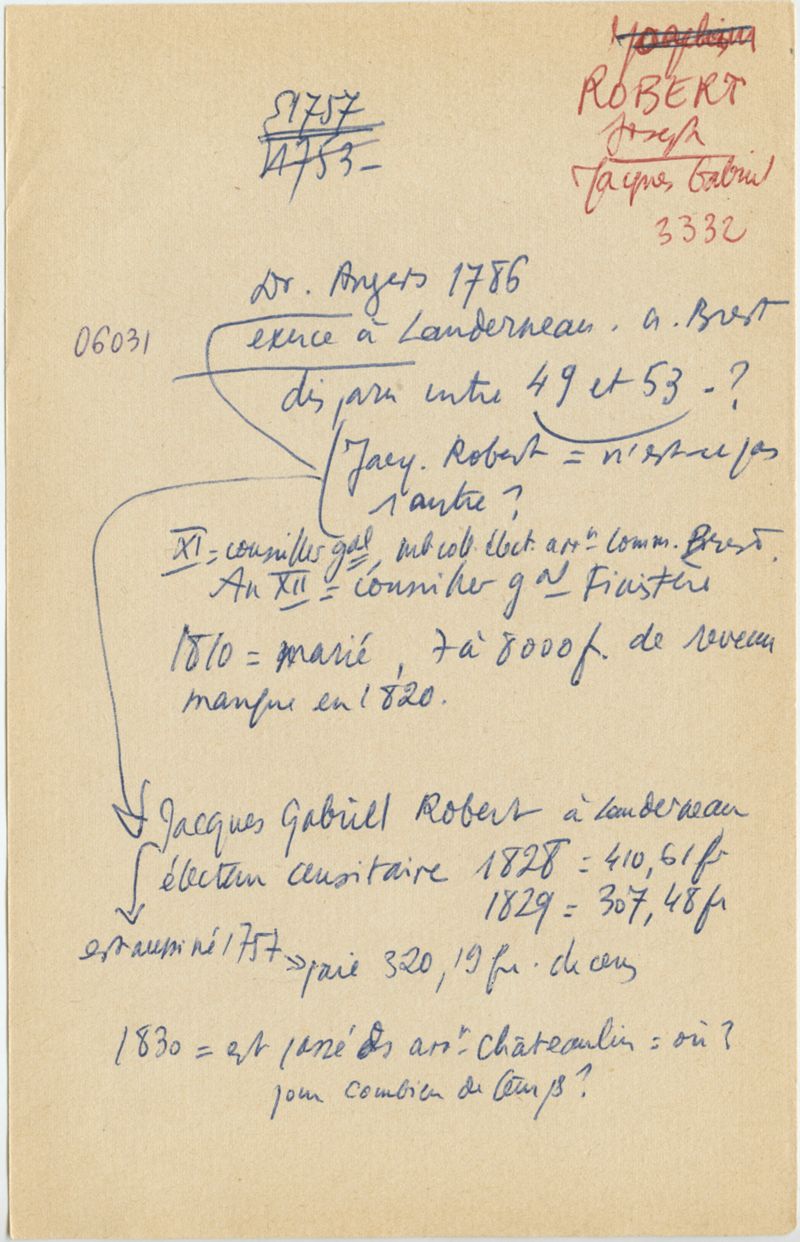 ROBERT
Joseph
Jacques Gabriel
3332
1757
1753 -
Dr. Angers 1786
06031
exerce à Landerneau. a. Brest
disparu entre 49 et 53 - ?
Jacq. Robert = n'est-ce pas
l'autre ?
XI = conseiller gal, mb coll. élect. arrt comm. Brest.
An XII = conseiller gal Finistère
1810 = marié, 7 à 8000 f. de revenu
manque en 1820.
Jacques Gabriel Robert à Landerneau
électeur censitaire 1828 = 410,61 fr
1829 = 307,48 fr
est aussi né 1757 → paie 320,19 fr. de cens
1830 = est passé ds arrt Châteaulin = où ?
pour combien de temps ?